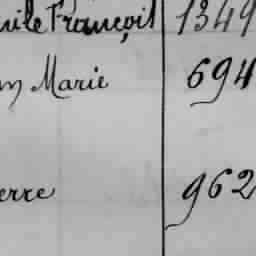 ile François 1349
Marie 694
erre 962